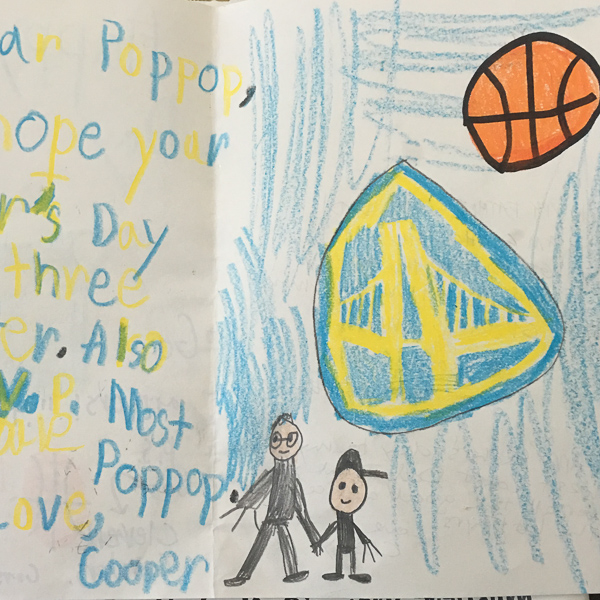 ar Poppop,
hope your
r's Day
three
er. Also
V.P. Most
Poppop.
Love,
Cooper